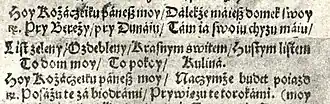 Hoy Kozaczeiku páneſz moy / Dálekże maieſz domek ſwoy
ꝛc. Pry Bereży / pry Dunáiu / Tam ia ſwoiu chyżu máiu /
Liſt zeleny / Ozdebleny / Kraſnym switem / Huſtym liſtem
To dom moy / To pokoy / Kuliná.
Hoy Kozaczeiku páneſz moy / Náczymże budet poiazd
ꝛc. Poſáżu te zá biodrámi / Prywiążu te torokámi. (moy